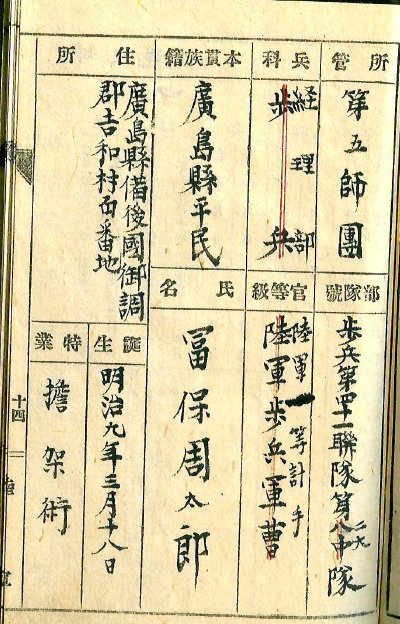 所管
第五師團
部隊號
歩兵第四十一聯隊第八中隊
二九
兵科
經理部
歩兵
官等級
陸軍一等計手
陸軍歩兵軍曹
本貫族籍
廣島縣平民
氏名
冨保周太郎
住所
廣島縣備後國御調
郡吉和村番地
誕生
明治九年三月十八日
特業
擔架術
十四
陸
軍